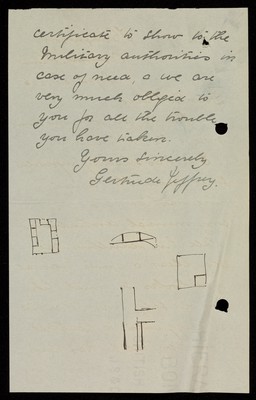 certificate to show to the
Military authorities in
case of need, & we are
very much obliged to
you for all the trouble
you have taken.
Yours Sincerely
Gertrude Jeffrey.